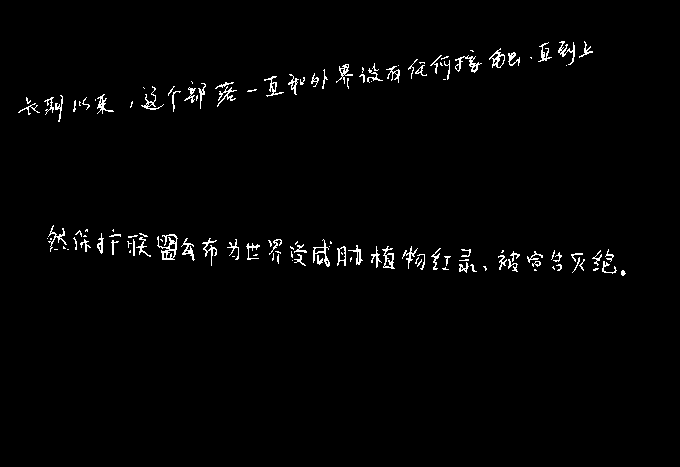 长期以来，这个部落一直和外界没有任何接触.直到上
然保护联盟公布为世界受威胁植物红录、被宣告灭绝。